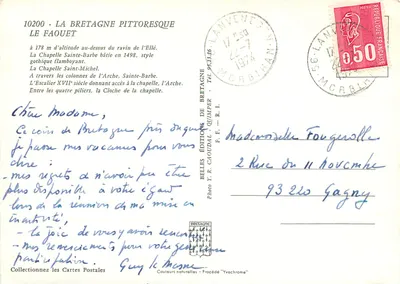 10200 - LA BRETAGNE PITTORESQUE
LE FAOUET
à 178 m d'altitude au-dessus du ravin de l'Ellé.
La Chapelle Sainte-Barbe bâtie en 1498, style
gothique flamboyant.
La Chapelle Saint-Michel.
A travers les colonnes de l'Arche, Sainte-Barbe.
L'Escalier XVIIe siècle donnant accès à la chapelle, l'Arche.
Entre les quatre piliers, la Cloche de la chapelle.
Chère Madame,
Ce coin de Bretagne près duquel
je passe mes vacances pour vous
dire :
- mes regrets de n'avoir pu être
plus disponible à votre égard
lors de la réunion de ma mise en
- la joie de vous y avoir rencontrée
- mes remerciements pour votre
participation.
Guy le
Collectionnez les Cartes Postales
BELLES ÉDITIONS DE BRETAGNE
Photo J. P. QUIMPER - Tél. 95.31.26
F. F. - R. I.
BRETAGNE
Couleurs naturelles - Procédé "Yvachrome"
LANVENEGEN
17 H
22-7
1974
MORBIHAN
LANVENEGEN
17 H
1974
MORBIHAN
0,50
Mademoiselle Fougerolle
2 Rue du 11 Novembre
93220 Gagny